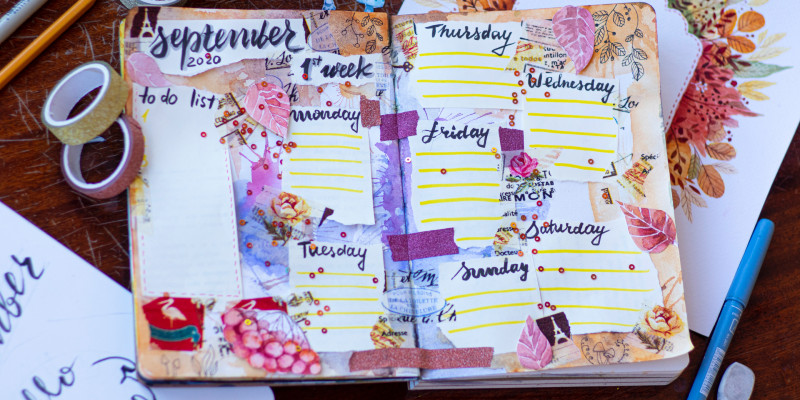 september
2020
1st week
to do list
monday
Tuesday
Thursday
Wednesday
friday
MON
Saturday
Sunday
Adresse